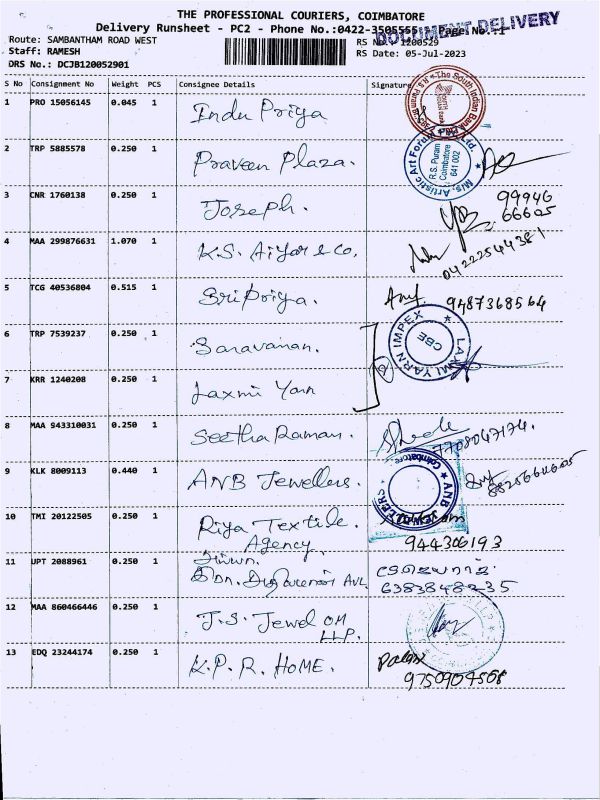 THE PROFESSIONAL COURIERS, COIMBATORE
Delivery Runsheet - PC2 - Phone No.:0422-3505555 Page No.:1
DOCUMENT DELIVERY
Route: SAMBANTHAM ROAD WEST RS No.: 1200529
Staff: RAMESH RS Date: 05-Jul-2023
DRS No.: DCJB120052901
S No Consignment No Weight PCS Consignee Details Signature
1 PRO 15056145 0.045 1 Indu Priya
The South Indian Bank
2 TRP 5885578 0.250 1 Praveen Plaza.
R.S. Puram
Coimbatore
641 002
3 CNR 1760138 0.250 1 Joseph. 99946
66605
4 MAA 299876631 1.070 1 K.S. Aiyar & Co.
04222544381
5 TCG 40536804 0.515 1 Sri Priya. 9487368564
6 TRP 7539237 0.250 1 Saravanan.
LAXMI YARN IMPEX
CBE
7 KRR 1240208 0.250 1 Laxmi Yarn
8 MAA 943310031 0.250 1 Seetha Raman. 7708047174.
9 KLK 8009113 0.440 1 ANB Jewellers.
ANB JEWELLERS Coimbatore
10 TMI 20122505 0.250 1 Riya Textile.
Agency. 944306193
11 UPT 2088961 0.250 1
AVL 6383848235
12 MAA 860466446 0.250 1 J.S. Jewel OM
LLP.
13 EDQ 23244174 0.250 1 K.P.R. HOME.